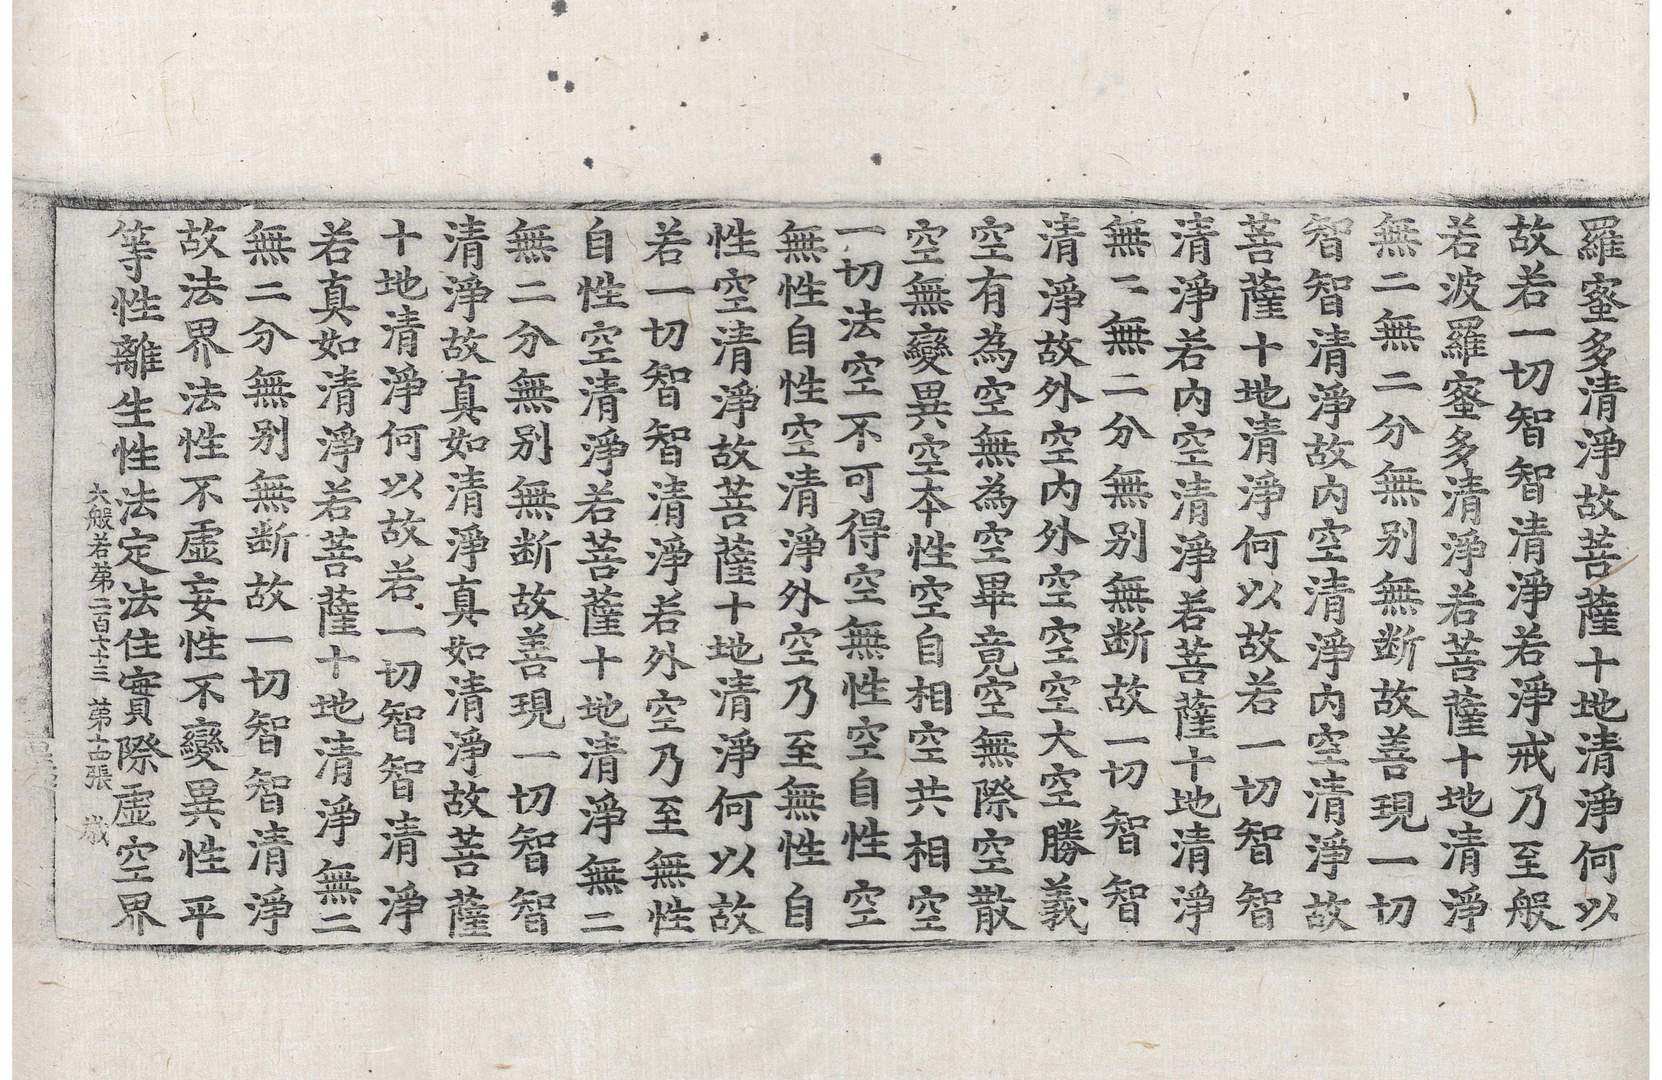 羅蜜多清淨故菩薩十地清淨何以
故若一切智智清淨若淨戒乃至般
若波羅蜜多清淨若菩薩十地清淨
無二無二分無别無断故善現一切
智智清淨故内空清淨内空清淨故
菩薩十地清淨何以故若一切智智
清淨若内空清淨若菩薩十地清淨
無二無二分無别無断故一切智智
清淨故外空内外空空空大空勝義
空有為空無為空畢竟空無際空散
空無變異空本性空自相空共相空
一切法空不可得空無性空自性空
無性自性空清淨外空乃至無性自
性空清淨故菩薩十地清淨何以故
若一切智智清淨若外空乃至無性
自性空清淨若菩薩十地清淨無二
無二分無别無断故善現一切智智
清淨故真如清淨真如清淨故菩薩
十地清淨何以故若一切智智清淨
若真如清淨若菩薩十地清淨無二
無二分無别無断故一切智智清淨
故法界法性不虛妄性不變異性平
等性離生性法定法住實際虛空界
般若第二百六十三 第十四張